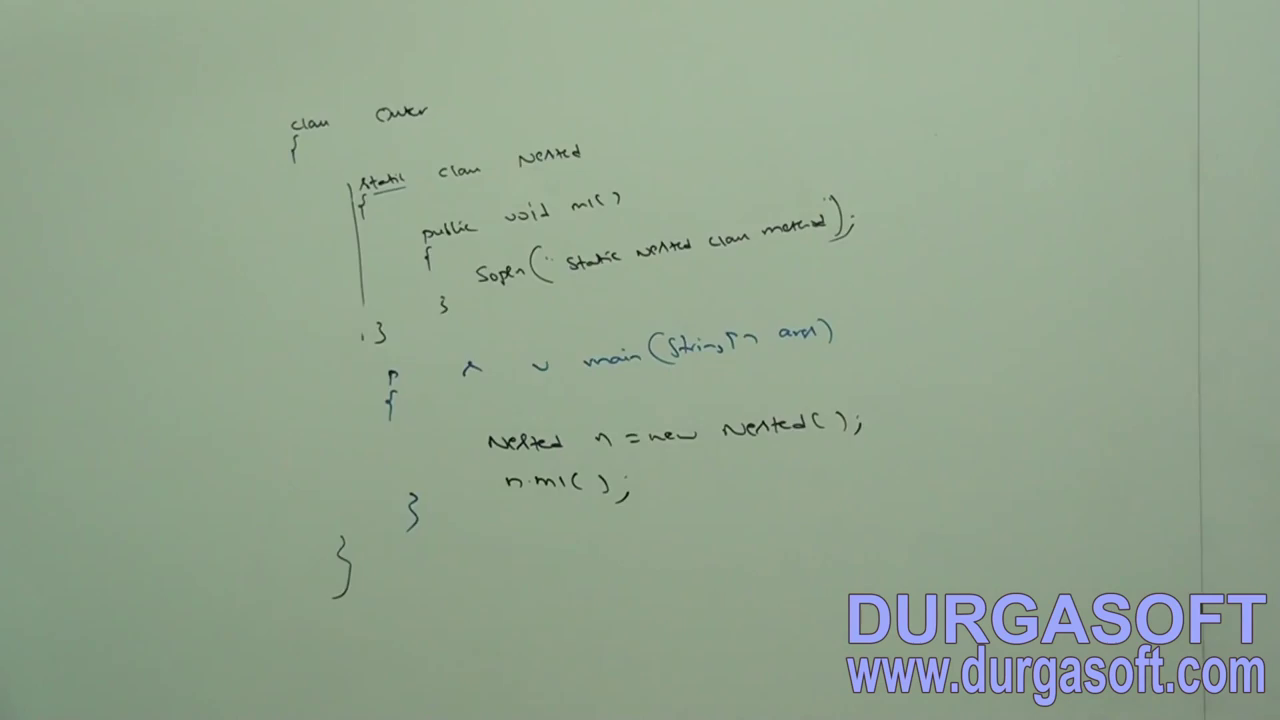 class Outer
{
static class Nested
{
public void m1()
{
Sopln("static nested class method");
}
}
p s v main(String[] args)
{
Nested n = new Nested();
n.m1();
}
}
DURGASOFT
www.durgasoft.com